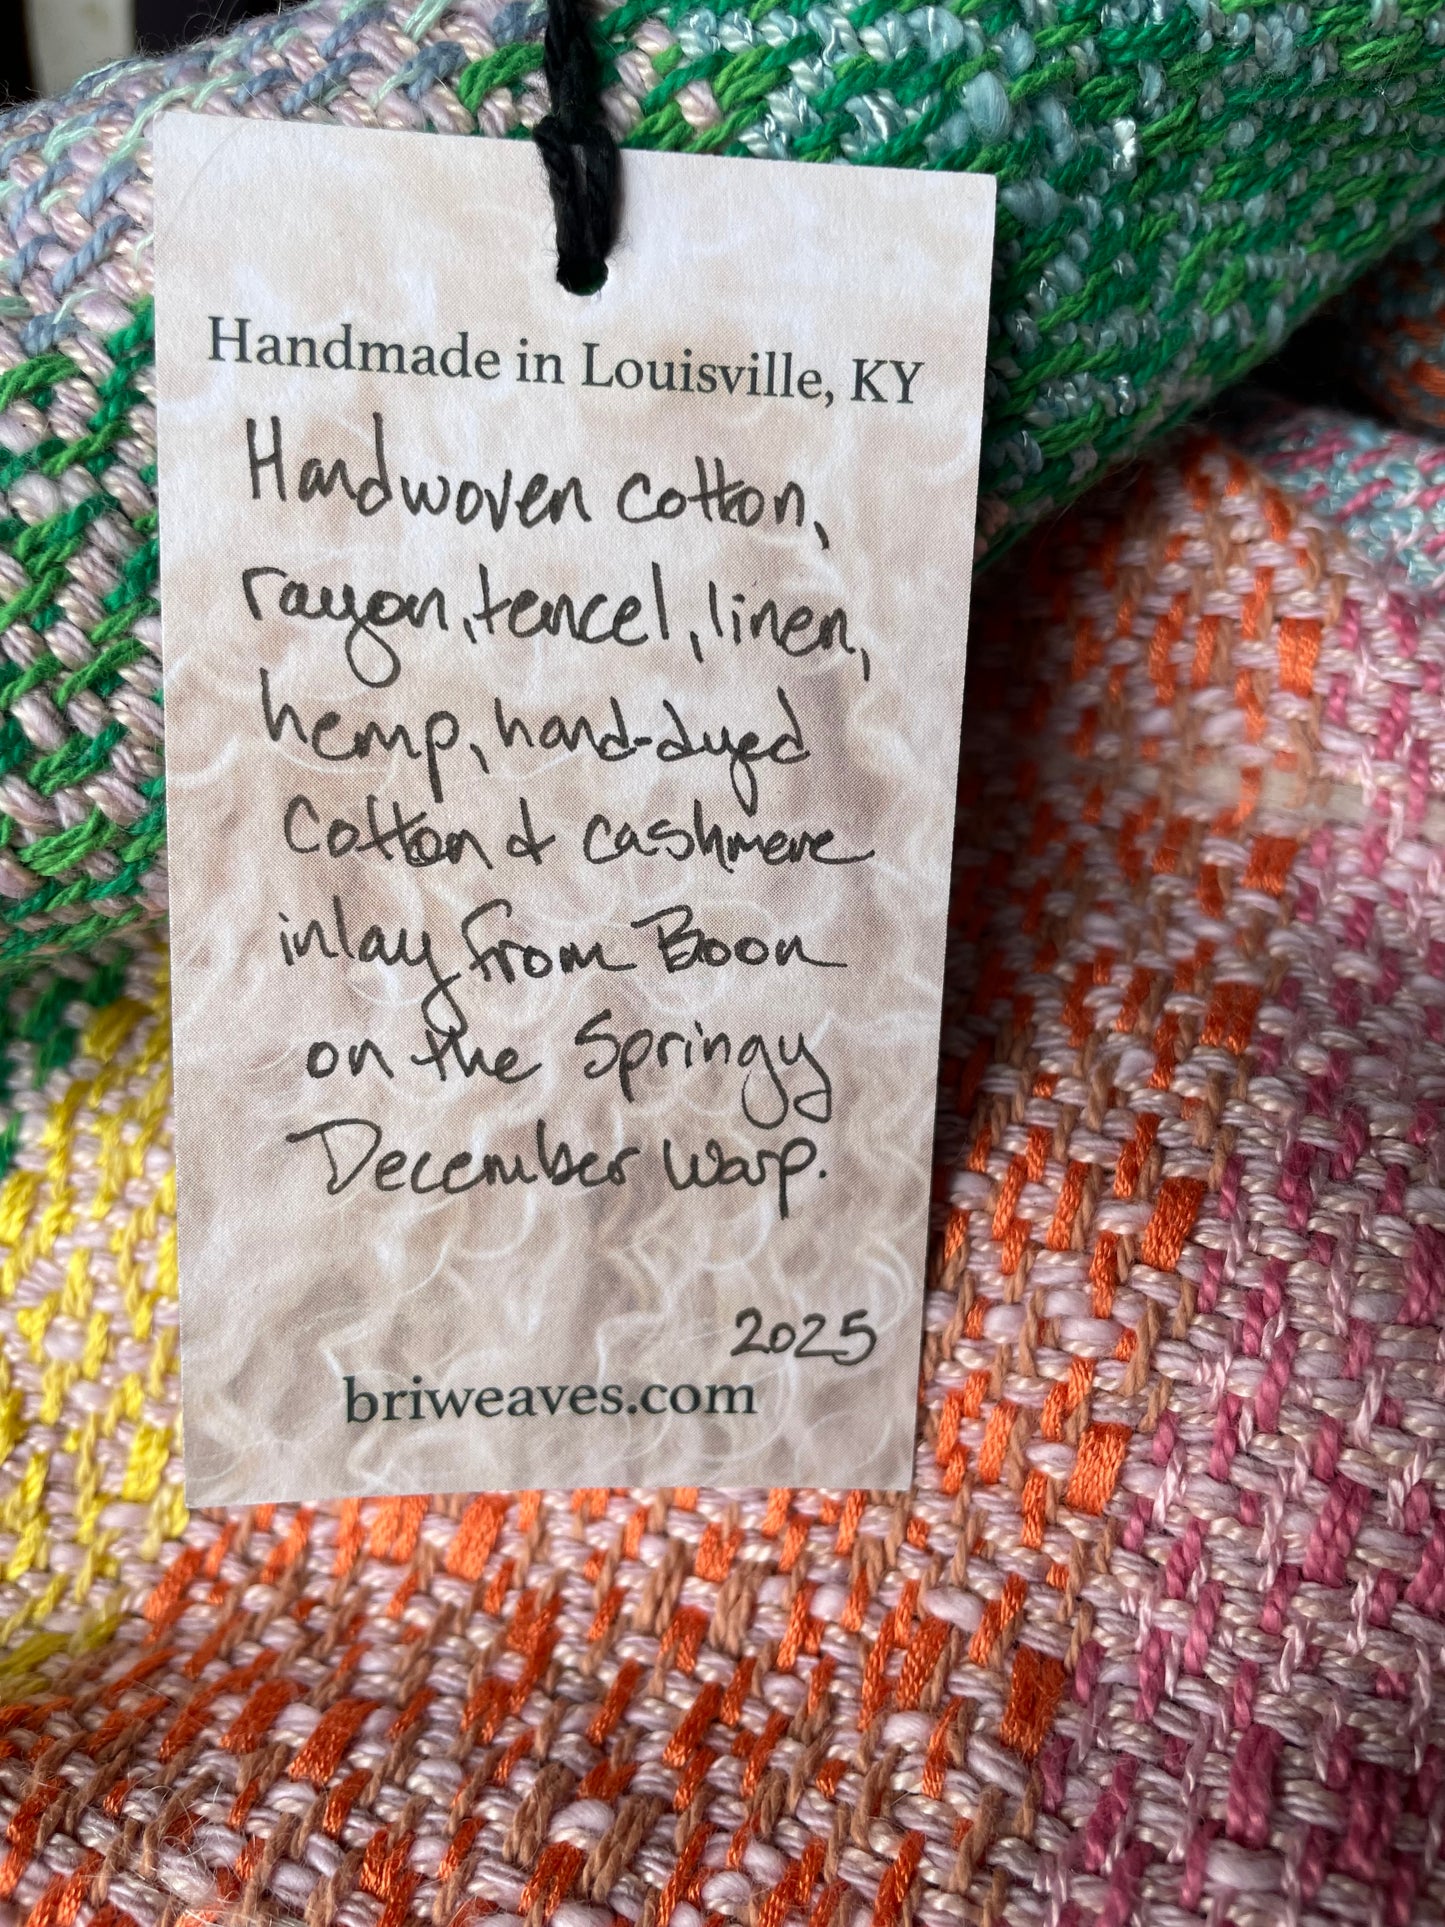 Handmade in Louisville, KY
Handwoven cotton,
rayon, tencel, linen,
hemp, hand-dyed
Cotton & cashmere
inlay from Boon
on the Springy
December Warp.
2025
briweaves.com